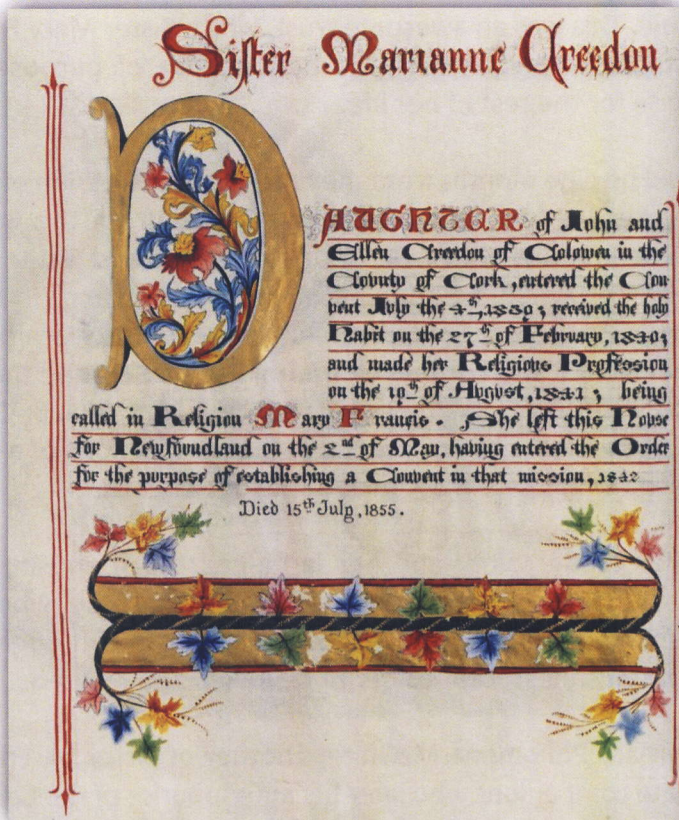 Sister Marianne Creedon
DAUGHTER of John and
Ellen Creedon of Colowen in the
County of Cork, entered the Con
vent July the , 1839; received the holy
Habit on the 27th of February, 1840;
and made her Religious Profession
on the 19th of August, 1841; being
called in Religion Mary Francis. She left this House
for Newfoundland on the 2nd of May, having entered the Order
for the purpose of establishing a Convent in that mission, 1842
Died 15th July, 1855.